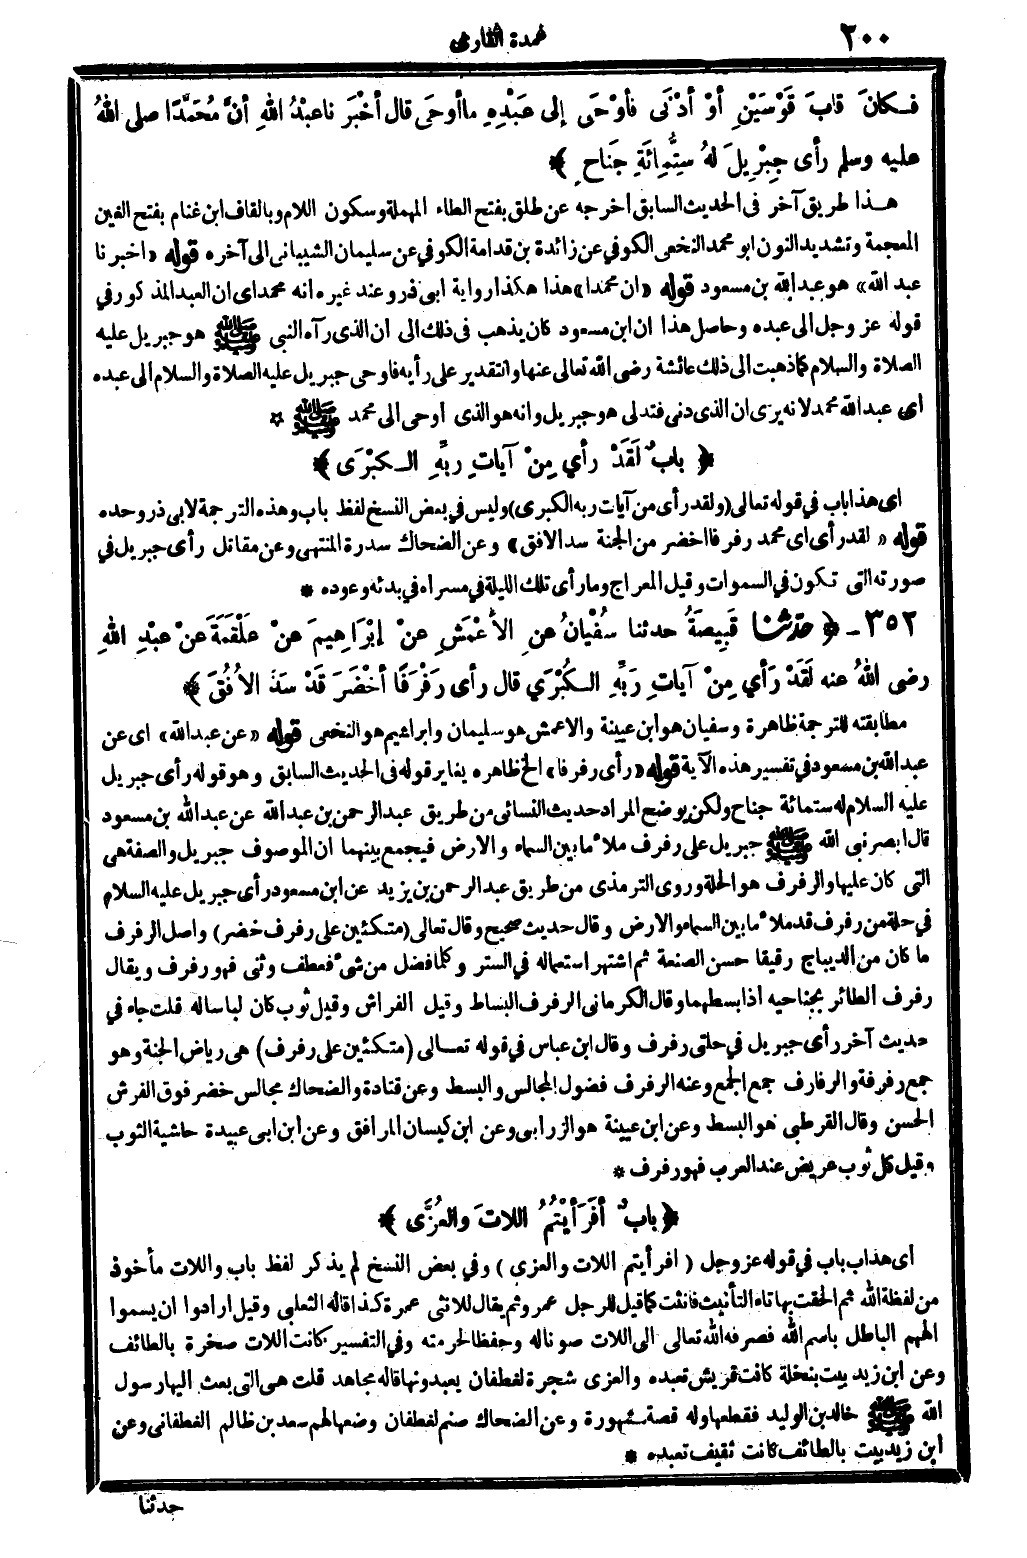 ٢٠٠
عمدة القارى
فَكانَ قابَ قَوْسَيْنِ أوْ أدْنَى فأوْحَى إلى عَبْدِهِ ماأوحَى قال أخْبَرَ ناعبْدُ اللهِ أنَّ مُحَمَّدًا صلى اللهُ
عليه وسلم رأى جِبْرِيلَ لهُ سِتُّمِائَةِ جَناحٍ ﴾
هذا طريق آخر فى الحديث السابق أخرجه عن طلق بفتح الطاء المهملة وسكون اللام وبالقاف ابن غنام بفتح الغين
المعجمة وتشديد النون ابو محمد النخعى الكوفي عن زائدة بن قدامة الكوفي عن سليمان الشيبانى الى آخره قوله «اخبرنا
عبد الله» هو عبد الله بن مسعود قوله «ان محمدا» هذا هكذا رواية ابى ذر وعند غيره انه محمد اى ان العبد المذكور في
قوله عز وجل الى عبده وحاصل هذا ان ابن مسعود كان يذهب فى ذلك الى ان الذى رآه النبى ﷺ هو جبريل عليه
الصلاة والسلام كما ذهبت الى ذلك عائشة رضى الله تعالى عنها والتقدير على رأيه فاوحى جبريل عليه الصلاة والسلام الى عبده
أى عبد الله محمد لانه يرى ان الذى دنى فتدلى هو جبريل وانه هو الذى اوحى الى محمد ﷺ ☆
﴿ بابٌ لَقَدْ رأي مِنْ آياتِ ربِّهِ الكبْرَى ﴾
اى هذا باب في قوله تعالى (ولقد رأى من آيات ربه الكبرى) وليس في بعض النسخ لفظ باب وهذه الترجمة لابى ذر وحده
قوله « لقد رأى اى محمد رفرفا اخضر من الجنة سد الافق» وعن الضحاك سدرة المنتهى وعن مقاتل رأى جبريل في
صورته التى تكون في السموات وقيل المعراج وما رأى تلك الليلة في مسراه في بدئه وعوده *
٣٥٢ - ﴿ حدثنا قَبِيصَةُ حدثنا سُفْيانُ عنِ الأعْمَشِ عنْ إبْرَاهِيمَ عَنْ عَلْقَمَةَ عَنْ عبْدِ اللهِ
رضى اللهُ عنه لَقَدْ رَأي مِنْ آياتِ رَبِّهِ الكُبْرَي قال رأى رَفْرَفًا أخْضَرَ قَدْ سَدَّ الأُفُقَ ﴾
مطابقته للترجمة ظاهرة وسفيان هو ابن عيينة والاعمش هو سليمان وابراهيم هو النخعى قوله «عن عبدالله» اى عن
عبد الله بن مسعود في تفسير هذه الآية قوله «رأى رفرفا» الخ ظاهره يغاير قوله فى الحديث السابق وهو قوله رأى جبريل
عليه السلام له ستمائة جناح ولكن يوضح المراد حديث النسائى من طريق عبد الرحمن بن عبد الله عن عبد الله بن مسعود
قال ابصر نبى الله ﷺ جبريل على رفرف ملأ ما بين السماء والارض فيجمع بينهما ان الموصوف جبريل والصفة هى
التى كان عليها والرفرف هو الحلة وروى الترمذى من طريق عبد الرحمن بن يزيد عن ابن مسعود رأى جبريل عليه السلام
في حلة من رفرف قد ملأ ما بين السماء والارض وقال حديث صحيح وقال تعالى (متكئين على رفرف خضر) واصل الرفرف
ما كان من الديباج رقيقا حسن الصنعة ثم اشتهر استعماله في الستر وكلما فضل من شىء فعطف وثنى فهو رفرف ويقال
رفرف الطائر بجناحيه أذا بسطهما وقال الكرمانى الرفرف البساط وقيل الفراش وقيل ثوب كان لباسا له قلت جاء في
حديث آخر رأى جبريل في حلتى رفرف وقال ابن عباس في قوله تعالى (متكئين على رفرف) هى رياض الجنة وهو
جمع رفرفة والرفارف جمع الجمع وعنه الرفرف فضول المجالس والبسط وعن قتادة والضحاك مجالس خضر فوق الفرش
الحسن وقال القرطبى هو البسط وعن ابن عيينة هو الزرابى وعن ابن كيسان المرافق وعن ابن ابى عبيدة حاشية الثوب
وقيل كل ثوب عريض عند العرب فهو رفرف *
﴿ بابٌ أفَرَأيْتُمُ اللاتَ والعُزَّى ﴾
أى هذا باب باب في قوله عز وجل ( افرأيتم اللات والعزى ) وفي بعض النسخ لم يذكر لفظ باب واللات مأخوذ
من لفظة الله ثم الحقت بها تاء التأنيث فانثت كما قيل للرجل عمرو ثم يقال للانثى عمرة كذا قاله الثعلبى وقيل ارادوا ان يسموا
الههم الباطل باسم الله فصرفه الله تعالى الى اللات صونا له وحفظا لحرمته وفي التفسير كانت اللات صخرة بالطائف
وعن ابن زيد بيت بنخلة كانت قريش تعبده والعزى شجرة لغطفان يعبدونها قاله مجاهد قلت هى التى بعث اليها رسول
الله ﷺ خالد بن الوليد فقطعها وله قصة مشهورة وعن الضحاك صنم لغطفان وضعها لهم سعد بن ظالم الغطفانى وعن
ابن زيد بيت بالطائف كانت ثقيف تعبده *
حدثنا